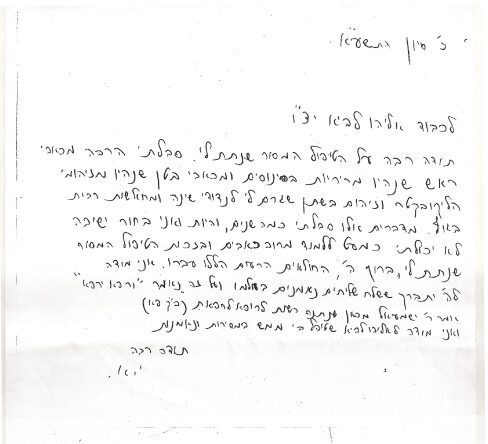 כ' סיון התשע"א
לכבוד אליהו לביא יצ"ו
תודה רבה על הטיפול המסור שנתת לי. סבלתי הרבה מכאבי
ראש שנהיו מחיידקים בסינוסים ומכאבי בטן שנהיו מזיהומי
הליקובקטר וזיהום בשתן שגרם לי לנדודי שינה ומחולשות רבות
בגוף. מדברים אלו סבלתי כמה שנים, והיות ואני בחור ישיבה
לא יכולתי כמעט ללמוד מרוב כאבים ובזכות הטיפול המסור
שנתת לי, ברוך ה', החולאים הרעים הללו עברו. אני מודה
לה' יתברך ששלח שליחים נאמנים בעולמו ועל זה נאמר "ורפא ירפא"
אומר ר' ישמעאל מכאן שנתנה רשות לרופא לרפאות (ב"ק פה)
ואני מודה לאליהו לביא שטיפל בי ממש במסירות ונאמנות
תודה רבה